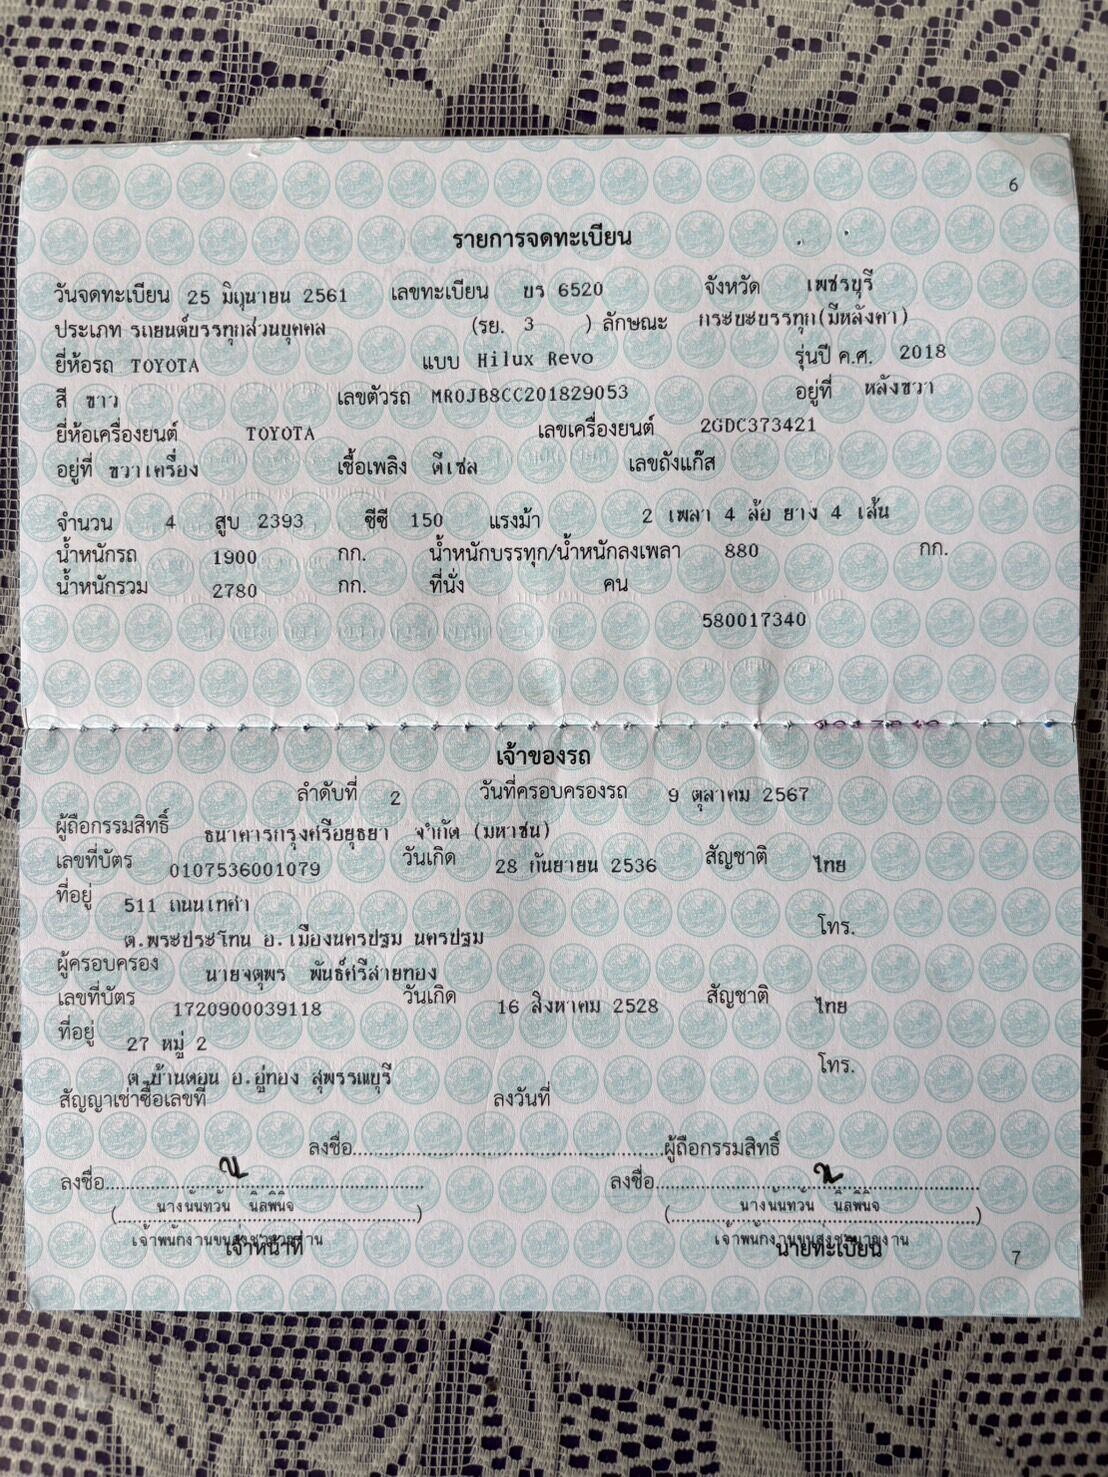 6
รายการจดทะเบียน
วันจดทะเบียน 25 มิถุนายน 2561 เลขทะเบียน บร 6520 จังหวัด เพชรบุรี
ประเภท รถยนต์บรรทุกส่วนบุคคล (รย. 3 ) ลักษณะ กระบะบรรทุก(มีหลังคา)
ยี่ห้อรถ TOYOTA แบบ Hilux Revo รุ่นปี ค.ศ. 2018
สี ขาว เลขตัวรถ MR0JB8CC201829053 อยู่ที่ หลังขวา
ยี่ห้อเครื่องยนต์ TOYOTA เลขเครื่องยนต์ 2GDC373421
อยู่ที่ ขวาเครื่อง เชื้อเพลิง ดีเซล เลขถังแก๊ส
จำนวน 4 สูบ 2393 ซีซี 150 แรงม้า 2 เพลา 4 ล้อ ยาง 4 เส้น
น้ำหนักรถ 1900 กก. น้ำหนักบรรทุก/น้ำหนักลงเพลา 880 กก.
น้ำหนักรวม 2780 กก. ที่นั่ง คน
580017340
เจ้าของรถ
ลำดับที่ 2 วันที่ครอบครองรถ 9 ตุลาคม 2567
ผู้ถือกรรมสิทธิ์ ธนาคารกรุงศรีอยุธยา จำกัด (มหาชน)
เลขที่บัตร 0107536001079 วันเกิด 28 กันยายน 2536 สัญชาติ ไทย
ที่อยู่ 511 ถนนเทศา
ต.พระประโทน อ.เมืองนครปฐม นครปฐม โทร.
ผู้ครอบครอง นายจตุพร พันธ์ศรีสายทอง
เลขที่บัตร 1720900039118 วันเกิด 16 สิงหาคม 2528 สัญชาติ ไทย
ที่อยู่ 27 หมู่ 2
ต.บ้านดอน อ.อู่ทอง สุพรรณบุรี โทร.
สัญญาเช่าซื้อเลขที่ ลงวันที่
ลงชื่อ....................................................ผู้ถือกรรมสิทธิ์
ลงชื่อ.................................................... ลงชื่อ....................................................
(นางนันทวัน นิลพินิจ) (นางนันทวัน นิลพินิจ)
เจ้าพนักงานขนส่งชำนาญงาน เจ้าพนักงานขนส่งชำนาญงาน
เจ้าหน้าที่ นายทะเบียน
7